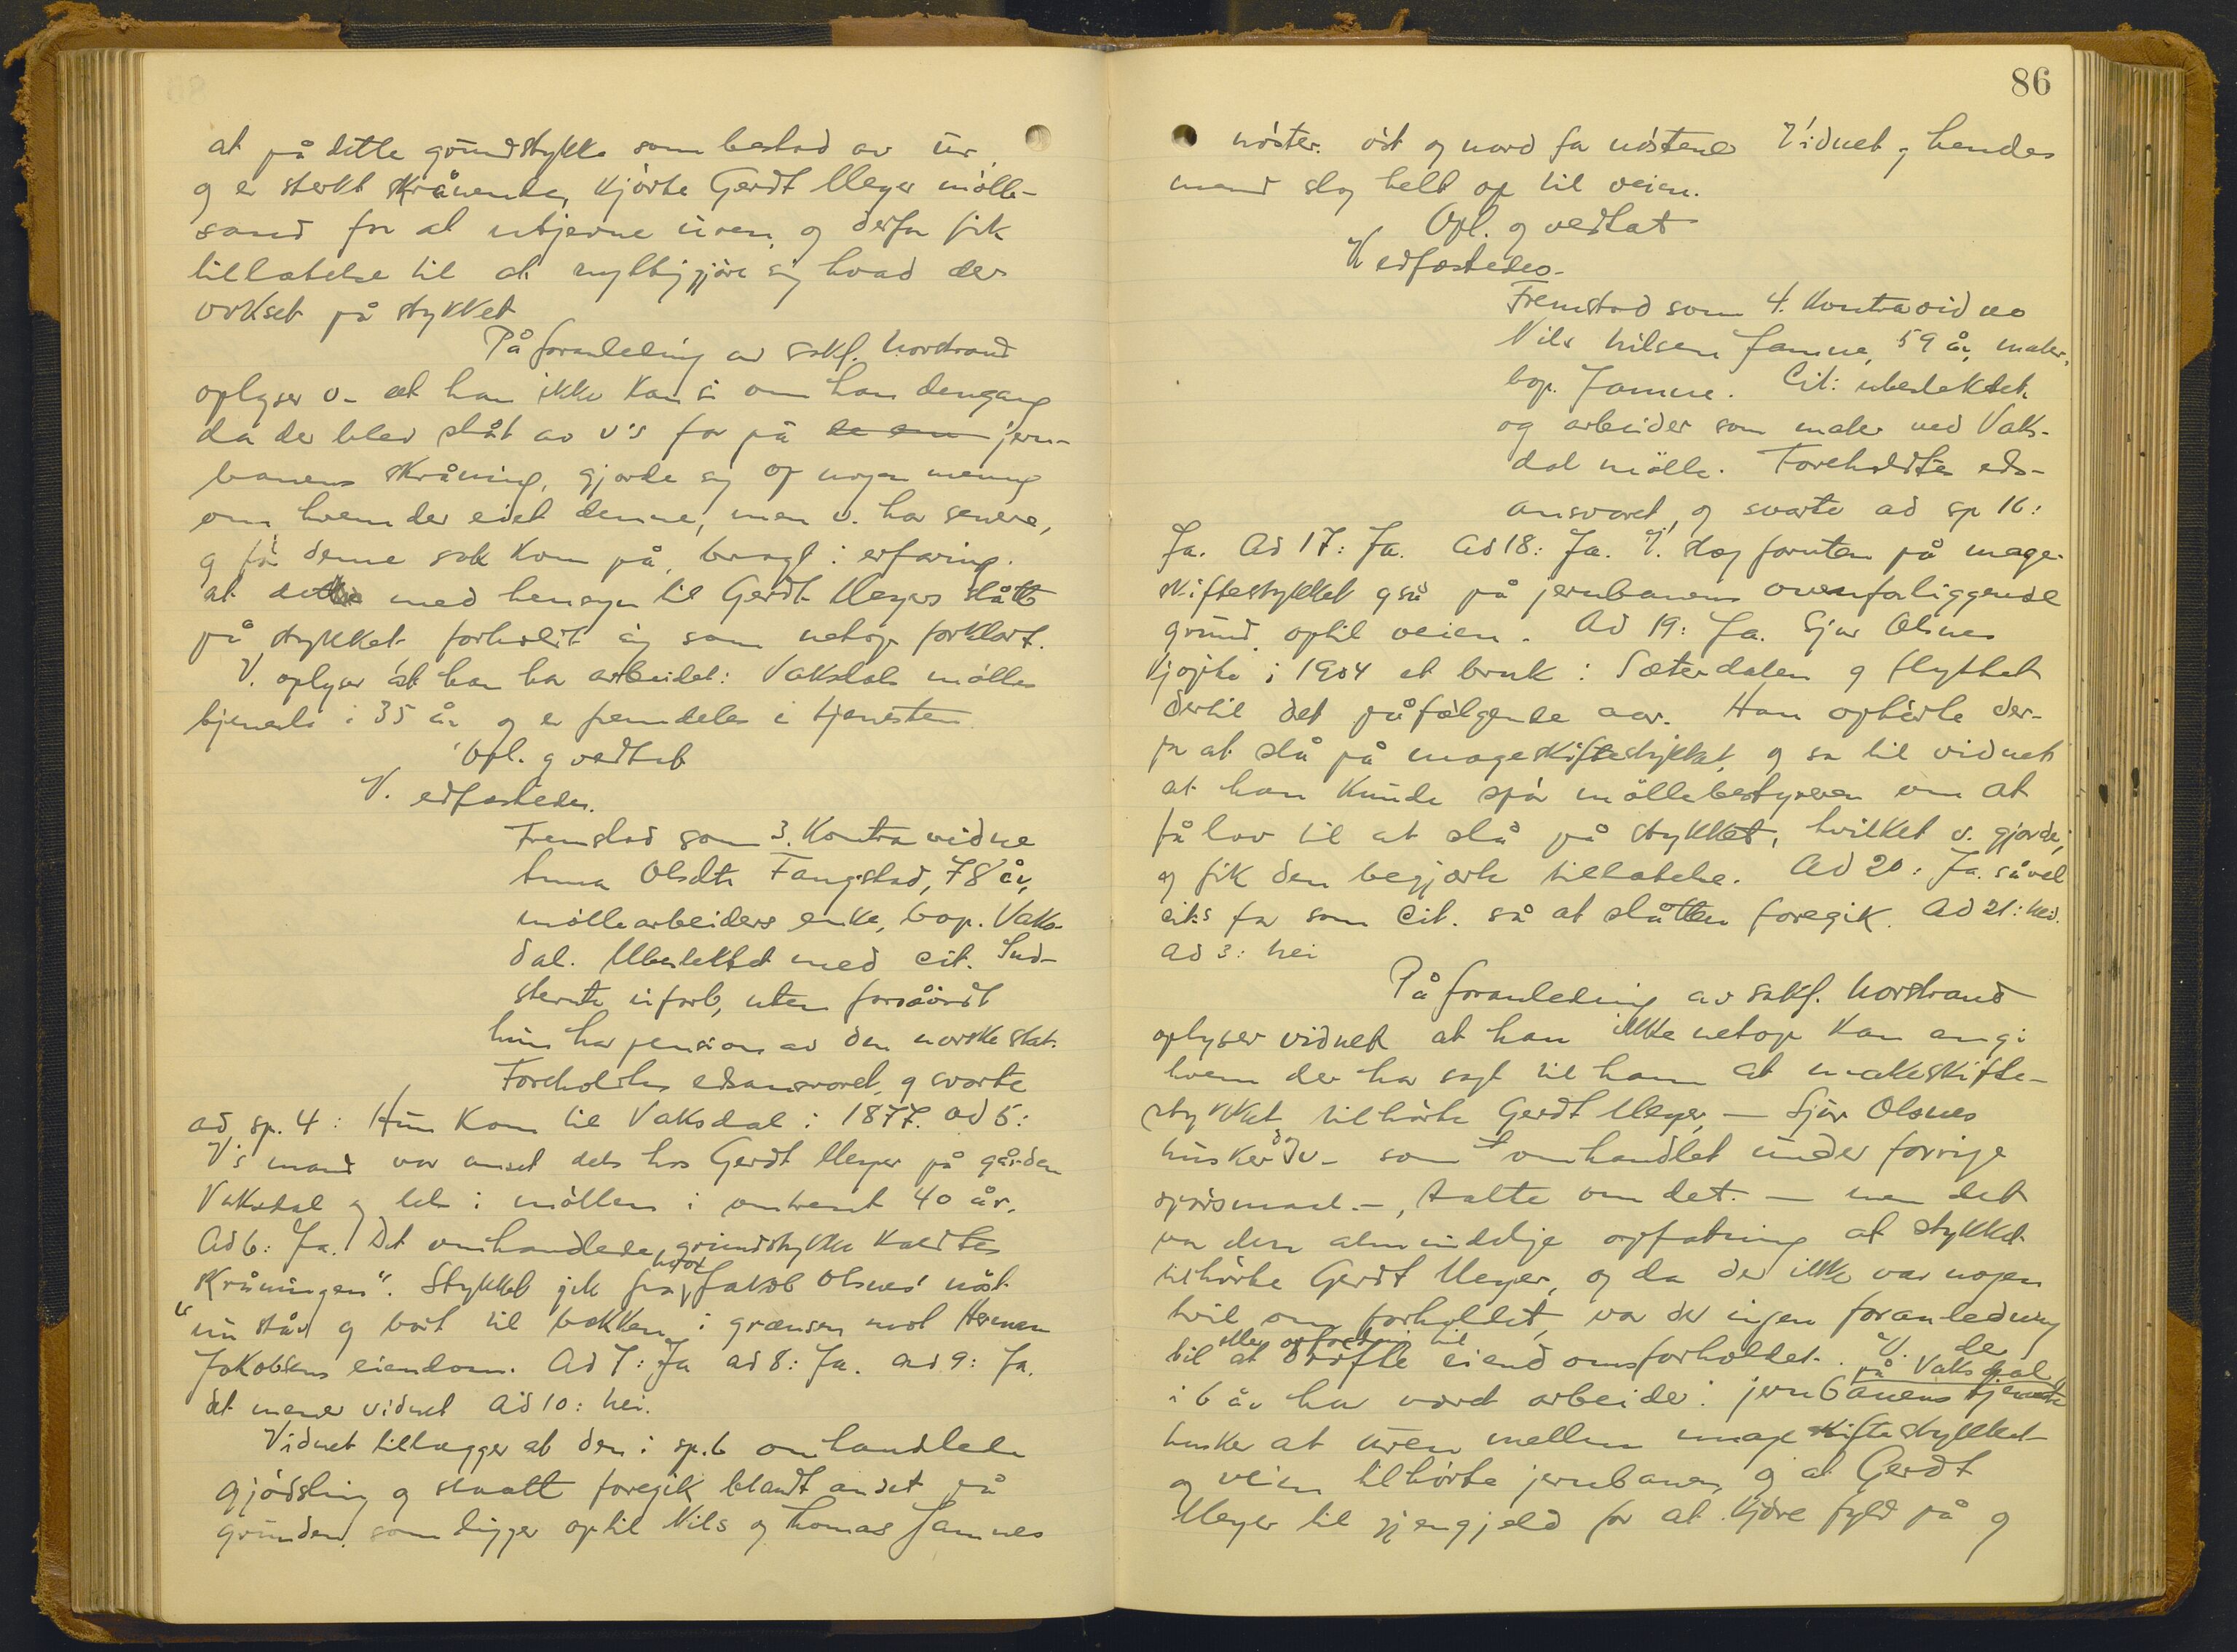 at på dette grundstykke som bestod av ur
og er sterkt skrånende, kjørte Gerdt Meyer mølle-
sand for at utjevne uren, og derfor fik
tillatelse til at nyttiggjøre sig hvad der
vokset på stykket
På foranledning av sakf. Nordstrand
oplyser v. at han ikke kan si om han dengang
da der blev slåt av v's far på jern-
banens skråning, gjorde sig op nogen mening
om hvem der eiet denne, men v. har senere,
og før denne sak kom på, bragt i erfaring
at dette med hensyn til Gerdt Meyers slått
på stykket forholdt sig som netop forklart.
V. oplyser at han har arbeidet i Vaksdals mølles
tjeneste i 35 år og er fremdeles i tjenesten
Opl. og vedtat
V. edfæstedes.
Fremstod som 3. Kontravidne
Anna Olsdtr Fangstad, 78 år,
møllearbeiders enke, bop. Vaks-
dal. Ubeslektet med cit. Ind-
stevnte uforb, uten forsåvidt
hun har pension av den norske stat.
Foreholdtes edsansvaret og svarte
ad sp. 4: Hun kom til Vaksdal i 1877. ad 5:
V's mand var ansat dels hos Gerdt Meyer på gården
Vaksdal og dels i møllen i omtrent 40 år.
Ad 6: Ja. Det omhandlede grundstykke kaldtes
"Skråningen". Stykket gik fra hvor Jakob Olsnes' nøst
nu står og bort til bækken i grænsen mot Herman
Jakobsens eiendom. Ad 7: Ja ad 8: Ja. ad 9: Ja.
det mener vidnet Ad 10: Nei.
Vidnet tillægger at den i sp. 6 omhandlede
gjødsling og slaatt foregik blandt andet på
grunden som ligger optil Nils og Thomas Jamnes
86
nøster. øst og nord for nøstene Vidnet og hendes
mand slog helt op til veien.
Opl. og vedtat
V edfæstedes.
Fremstod som 4. Kontravidne
Nils Nilsen Jamne, 59 år, maler,
bop. Jamne. Cit: ubeslektet
og arbeider som maler ved Vaks-
dal mølle. Foreholdtes eds-
ansvaret, og svarte ad sp 16:
Ja. Ad 17: Ja. Ad 18: Ja. V. slog foruten på mage-
skiftestykket også på jernbanens ovenforliggende
grund optil veien. Ad 19: Ja. Sjur Olsnes
kjøpte i 1904 et bruk i Sæterdalen og flyttet
dertil det påfølgende aar. Han ophørte der-
for at slå på mageskiftestykket og sa til vidnet
at han kunde spør møllebestyreren om at
få lov til at slå på stykket, hvilket v. gjorde,
og fik den begjærte tillatelse. Ad 20: Ja. såvel
cits far som cit. så at slåtten foregik. Ad 21: Nei.
Ad 3: Nei
På foranledning av sakf. Nordstrand
oplyser vidnet at han ikke netop kan angi
hvem der har sagt til ham at makeskifte-
stykket tilhørte Gerdt Meyer, — Sjur Olsnes
husker v. som omhandlet under forrige
spørsmaal -, talte om det. — men det
var den almindelige opfatning at stykket
tilhørte Gerdt Meyer, og da der ikke var nogen
tvil om forholdet, var der ingen foranledning
eller opfordring til
til at drøfte eiendomsforholdet. V. de
på Vaksdal
i 6 år har været arbeider i jernbanens tjeneste
husker at uren mellem mageskiftestykket
og veien tilhørte jernbanen, og at Gerdt
Meyer til gjengjæld for at kjøre fyld på og